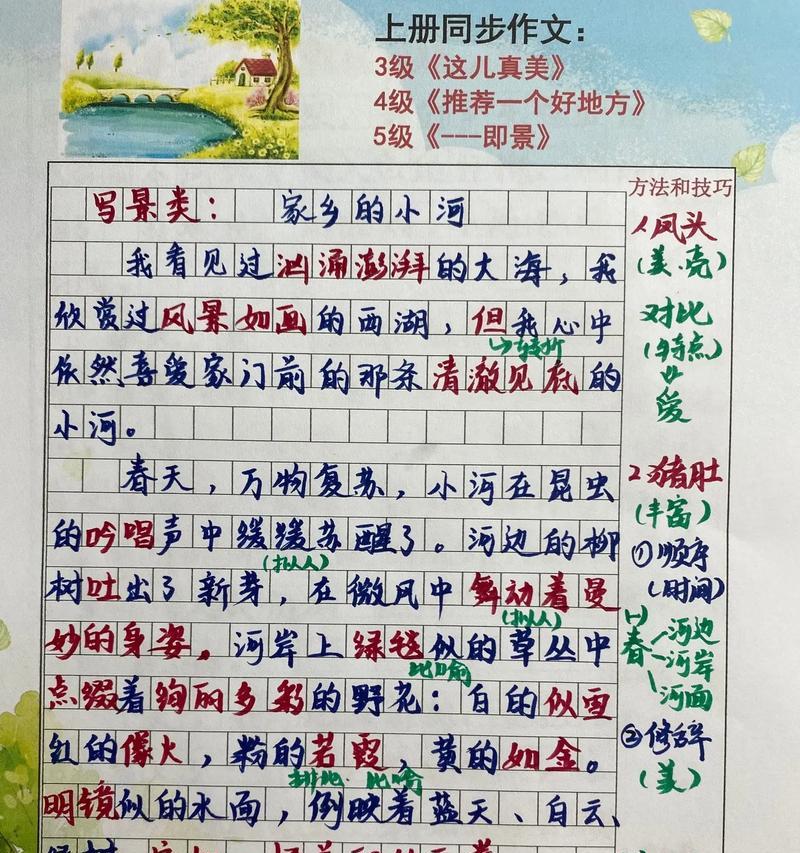 上册同步作文：
3级《这儿真美》
4级《推荐一个好地方》
5级《---即景》
方法和技巧
写景类： 家乡的小河
我看见过汹涌澎湃的大海，我
欣赏过风景如画的西湖，但我心中
转折
依然喜爱家门前的那条清澈见底的
小河。
春天，万物复苏，小河在昆虫
的吟唱声中缓缓苏醒了。河边的柳
(拟人)
树吐出了新芽，在微风中舞动着曼
(拟人)
妙的身姿。河岸上绿毯似的草丛中
比喻
点缀着绚丽多彩的野花：白的似雪
红的像火，粉的若霞，黄的如金。
排比 比喻
明镜似的水面，倒映着蓝天、白云、
1、凤头
(美、亮)
对比
(特点)
爱
2、猪肚
(丰富)
①顺序
(时间)
(1)
春 河边
河岸
河面
②修辞
(美)